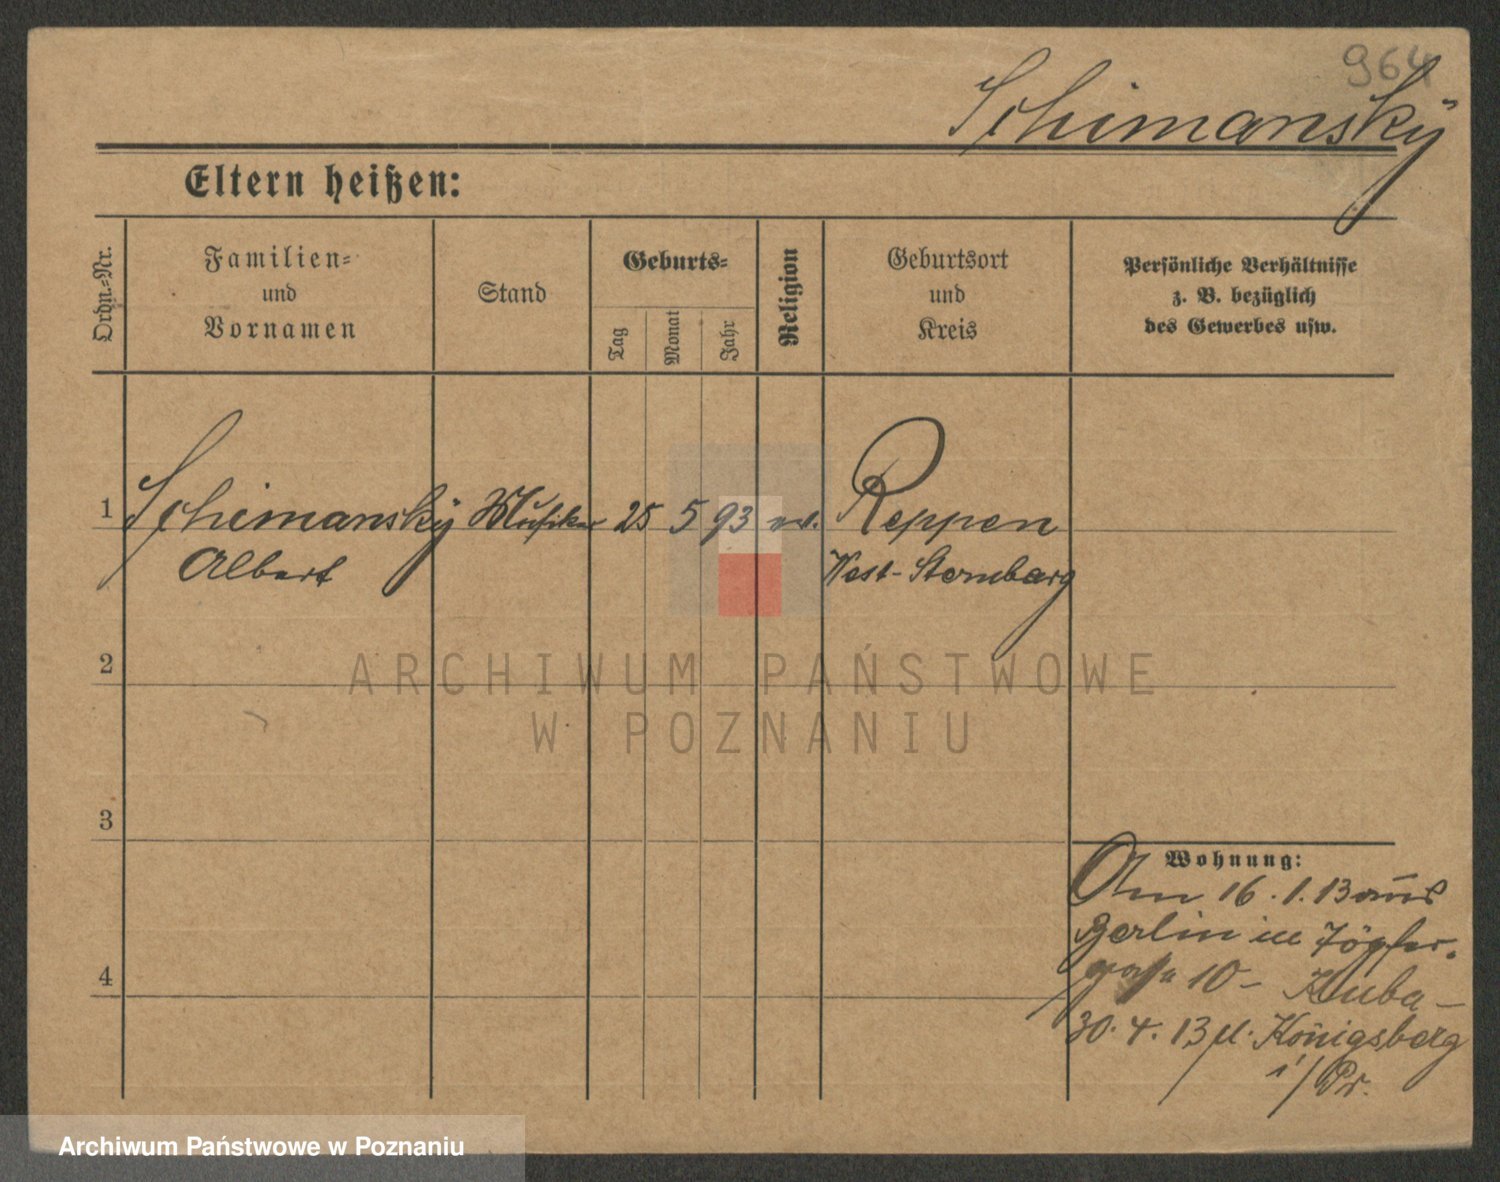 964
Schimansky
Eltern heißen:
Ordn.-Nr.
Familien-
und
Vornamen
Stand
Geburts-
Tag
Monat
Jahr
Religion
Geburtsort
und
Kreis
Persönliche Verhältnisse
z. B. bezüglich
des Gewerbes usw.
1 Schimansky Musiker 25 5 93 Reppen
Albert West-Sternberg
2
3
4
Wohnung:
Am 16.1.13 aus
Berlin in Töpfer-
gasse 10 –
30.4.13 Königsberg
i/Pr.
ARCHIWUM PAŃSTWOWE
W POZNANIU
Archiwum Państwowe w Poznaniu